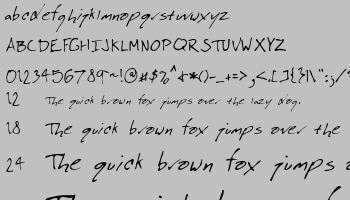 abcdefghijklmnopqrstuvwxyz
ABCDEFGHIJKLMNOPQRSTUVWXYZ
0123456789~!@#$%^&*()-_+=>,<.[]{}|\":;/
12 The quick brown fox jumps over the lazy dog.
18 The quick brown fox jumps over the
24 The quick brown fox jumps